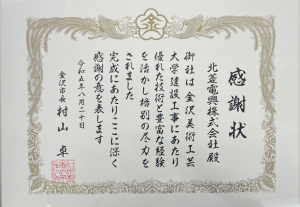 感謝状
北菱電興株式会社殿
御社は金沢美術工芸
大学建設工事にあたり
優れた技術と豊富な経験
を活かし格別の尽力を
されました
完成にあたりここに深く
感謝の意を表します
令和五年八月二十日
金沢市長 村山 卓